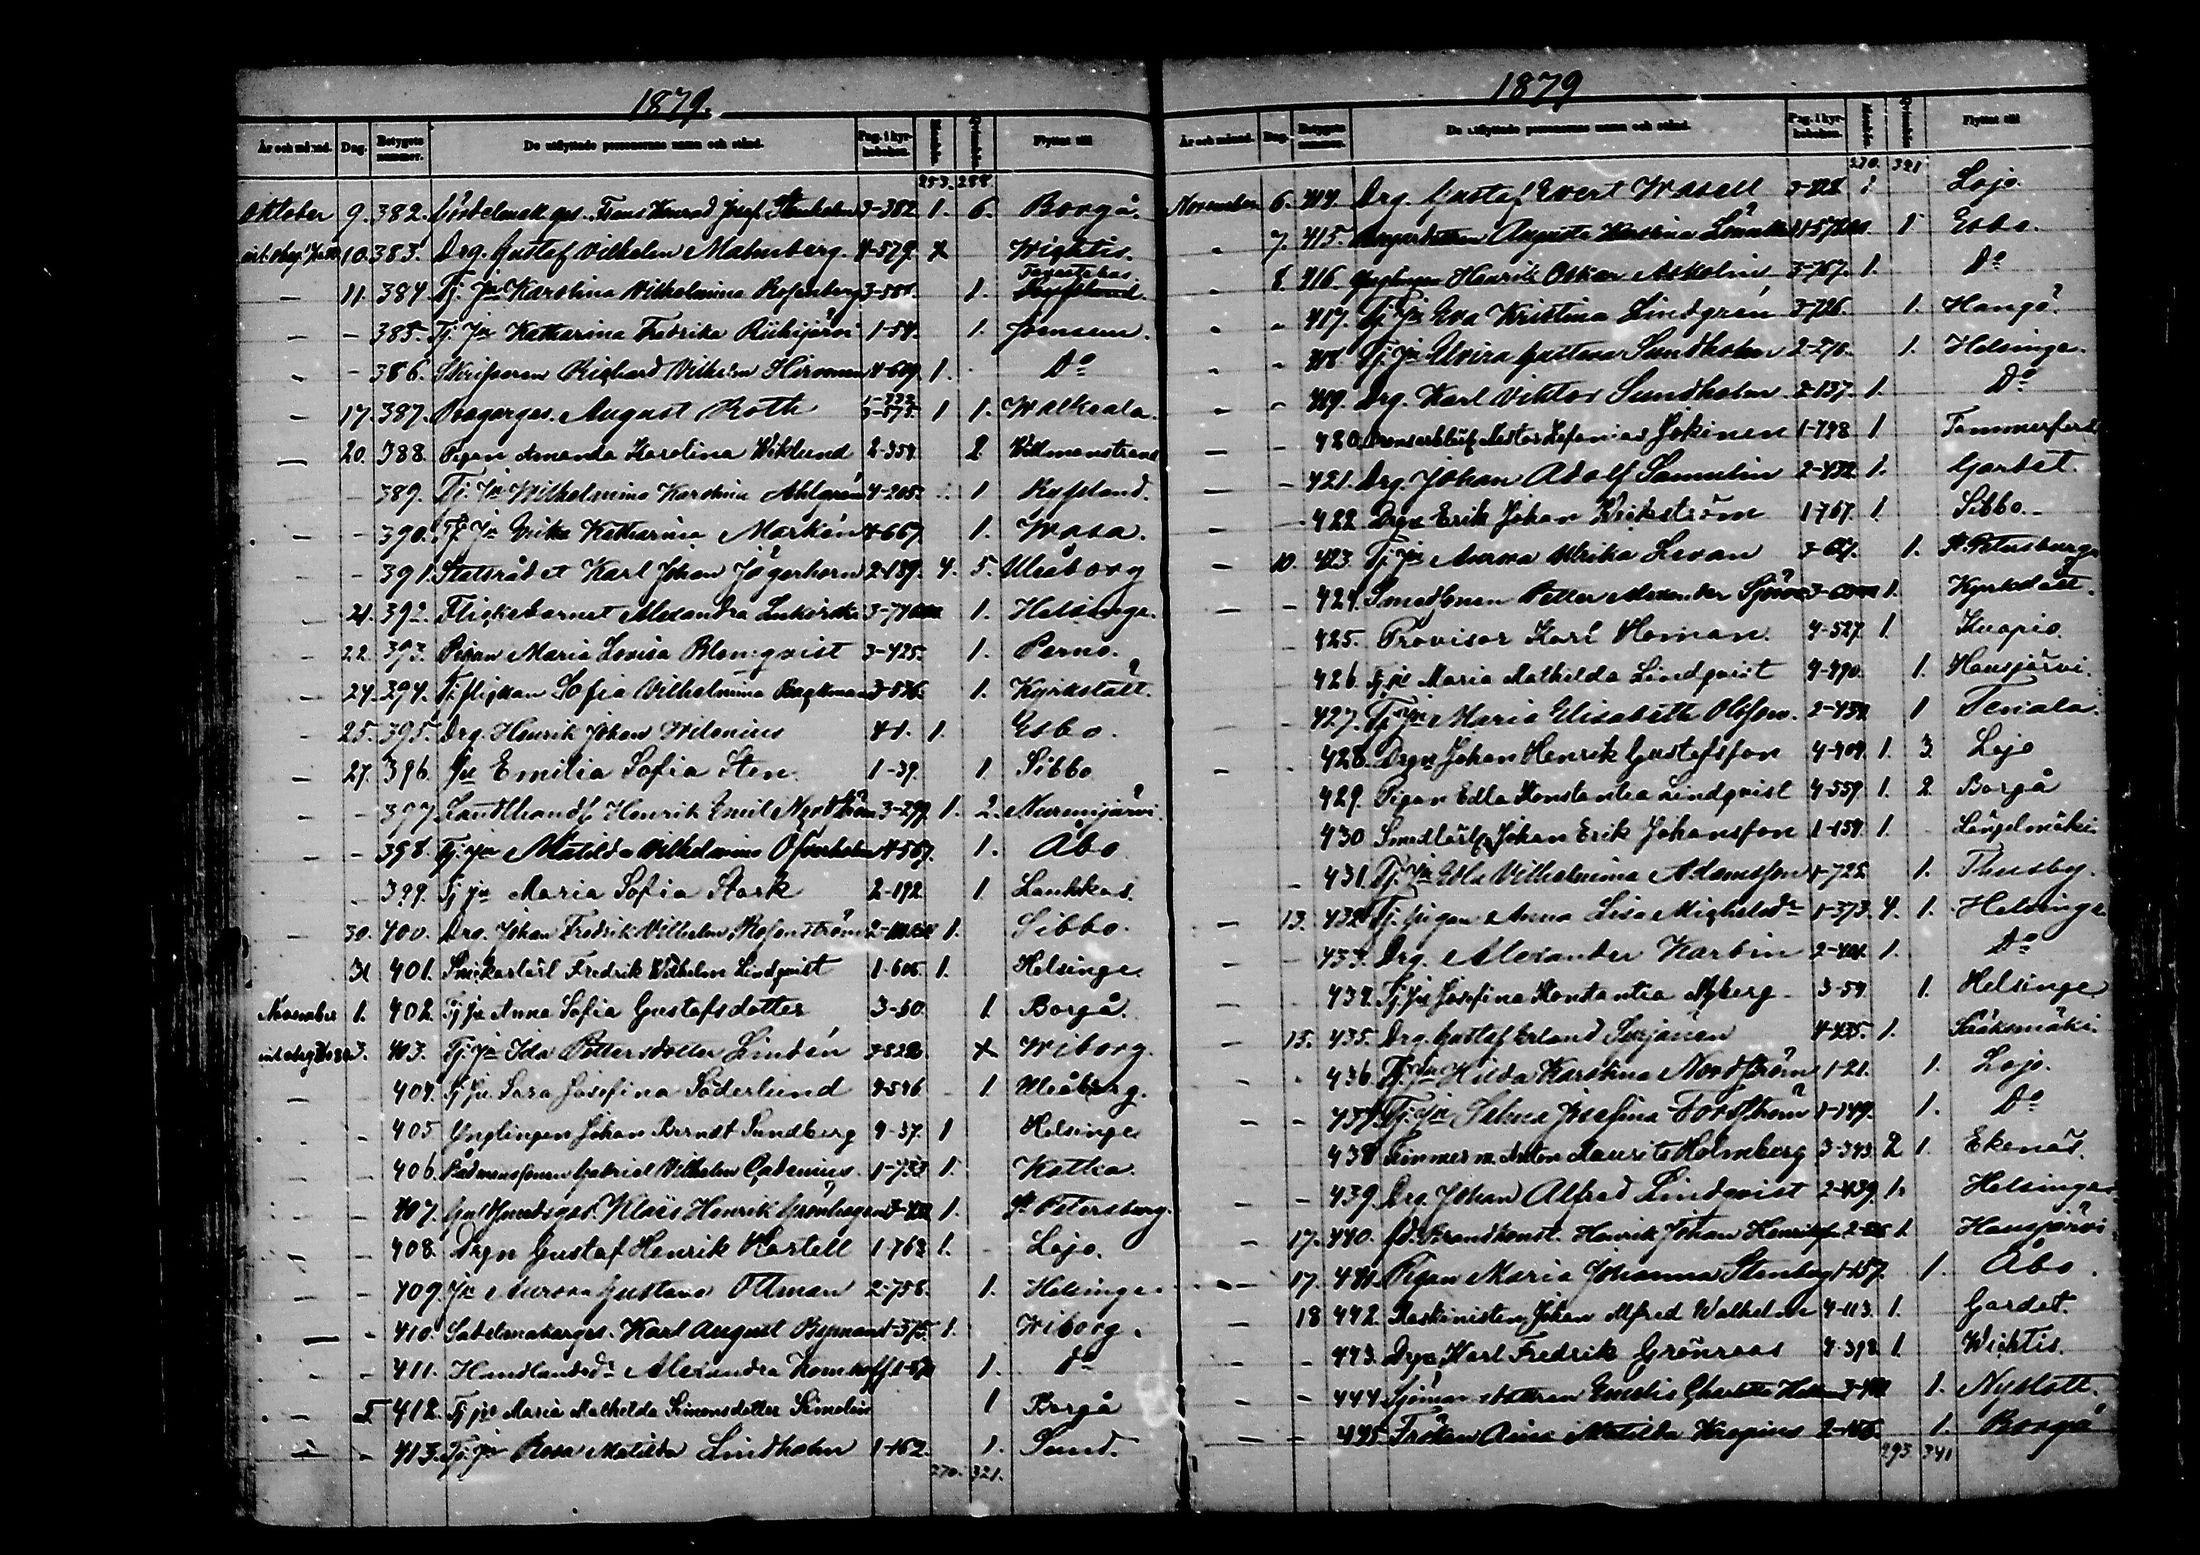 1879.
År och månad. Dag. Betygets nummer. De utflyttade personernas namn och stånd. Pag. i kyrkoboken. Mankön. Qvinkön. Flyttat till
253. 288.
Oktober 9. 382. Frans Konrad Josef Stenholm 3-382 1. 6. Borgå.
10. 383. Drg. Gustaf Vilhelm Malmberg. 4-579 Wichtis.
— 11. 384. Tj. pn Karolina Vilhelmina Rosenberg 1. Tavastehus
— - 385. Tj. pn Katharina Fredrika Riihijärvi 1-54. 1. Joensuu.
- - 386. Skrifvaren Richard Vilhelm Hirvonen 4-609. 1. Do
- 17. 387. Bagareges. August Roth 1 1. Walkeala.
— 20. 388. Pigan Amanda Karolina Wiklund 2-354 2 Willmanstrand
- 389. Tj. pn Wilhelmina Karolina Ahlgren 4-205. 1 Kyssland.
- - 390. Tj. pn Ulrika Katharina Markén 4-667 1. Wasa.
- 391. Statsrådet Karl Johan Jägerhorn 2-139. 4. 5. Uleåborg
- 21. 392. Flickebarnet Alexandra 1. Helsinge.
- 22. 393. Pigan Maria Lovisa Blomqvist 3-425. 1. Perno.
- 24. 394. Tj. flickan Sofia Vilhelmina 1. Kyrkslätt.
- 25. 395. Drg. Henrik Johan Wilenius 4-1. 1. Esbo.
- 27. 396. Pn Emilia Sofia Sten. 1-39. 1 Sibbo
- - 397. Henrik Emil Nordström 3-299 1. 2. Nurmijärvi
- - 398. Tj. pn Matilda Vilhelmina 4-567. 1. Åbo
- 399. Tj pn Maria Sofia Stark 2-192 1 Laukkas.
- 30. 400. Drg. Johan Fredrik Vilhelm Rosenström 1. Sibbo.
- 31 401. Snickarlärl Fredrik Wilhelm Lindqvist 1-606. 1. Helsinge
November 1. 402. Tj pn Anna Sofia Gustafsdotter 3-60. 1. Borgå.
3. 403. Tj. pn Ida Pettersdotter Lindén Wiborg.
- - 404. Tj pn Sara Josefina Söderlund 4-546 1. Uleåborg.
- - 405 Ynglingen Johan Berndt Sundberg 4-37. 1 Helsinge
- - 406. Rådmanssonen Gabriel Vilhelm Cadenius. 1-733 1. Kotka.
- - 407. Klais Henrik Grönhagen 1. St Petersburg.
- - 408. Drgn Gustaf Henrik Kastell 1-762 1. Lojo.
- - 409. Pn Aurora Gustava Ottman 2-758. 1. Helsinge.
— - 410. Sadelmakarges. Karl August 1. Wiborg.
- - 411. Handlandedr Alexandra 1. Do
- 5 412. Tj pn Maria Mathilda Simonsdotter Simolin 1 Borgå
- - 413. Tj. pn Rosa Matilda Lindholm 1-162. 1. Sund.
270. 321.
1879
År och månad. Dag. Betygets nummer. De utflyttade personernas namn och stånd. Pag. i kyrkoboken. Mankön. Qvinkön. Flyttat till
270. 321
November 6. 414. Drg. Gustaf Evert Wasell 3-428 1 Lojo.
- 7. 415. Augusta Karolina 1 Esbo.
- 8. 416. Ynglingen Henrik Oskar Askolin 3-767. 1. Do
- - 417. Tj. pn Eva Kristina Lindgrén 3-726. 1. Hangö.
- - 418. Tj. pn Elvira Gustava Sundholm 2-270. 1. Helsinge.
- - 419. Drg. Karl Viktor Sundholm 2-137. 1. Do
- 420. Nestor Zefanias Jokinen 1-798 1. Tammerfors
- - 421. Drg. Johan Adolf Samulin 2-432 1. Gardet.
- - 422 Drgn Erik Johan Wickström 1-767. 1. Sibbo
- 10. 423. Tj. pn Aurora Ulrika Levan 1. St Petersburg
- - 424. Smedsonen Petter Alexander 1. Kyrkslätt.
- 425. Provisor Karl Homan. 4-527. 1. Kuopio.
- 426. Tj pn Maria Mathilda Lindqvist 4-490. 1. Hausjärvi.
- - 427. Tj. pn Maria Elisabeth Olsson. 2-454. 1 Tenala.
- - 428. Drgn Johan Henrik Gustafsson 4-404. 1. 3 Lojo
429. Pigan Edla Konstantia Lindqvist 4-559 1. 2 Borgå
430 Smedlärl. Johan Erik Johansson 1-154. 1. Längelmäki.
- 431. Tj. pn Edla Vilhelmina Adamsson 4-722. 1. Thusby.
— 13. 432. Tj. pigan Anna Lisa Michelsdr 1-373. 4. 1. Helsinge
- - 433. Drg. Alexander Karbin 2-404. 1. Do
- - 434. Tj pn Josefina Konstantia Nyberg 3-54 1. Helsinge
- 15. 435. Drg. Gustaf Erland 4-435. 1. Sääksmäki.
- - 436. Tj. pn Hilda Karolina Nordström 1-21. 1. Lojo.
- - 437. Tj. pn Selma Josefina Forsström 1-149. 1. Do
438 Timmerm. Anton Laurits Holmberg 3-343. 2 1. Ekenäs.
- - 439. Drg. Johan Alfred Lindqvist 2-439. 1. Helsinge.
- 17. 440. fd. Brandkonst. Henrik Johan 1. Hausjärvi
- 17. 441. Pigan Maria Johanna Stenberg 1-157. 1. Åbo.
- 18 442. Maskinisten Johan Alfred Walhelm 4-113. 1. Gardet.
- - 443. Drgn Karl Fredrik Grönroos 4-398 1. Wichtis.
- - 444. Sjömansdottren Emelie Charlotta 1. Nyslott.
— - 445. Fröken Aina Matilda 1. Borgå
293 341